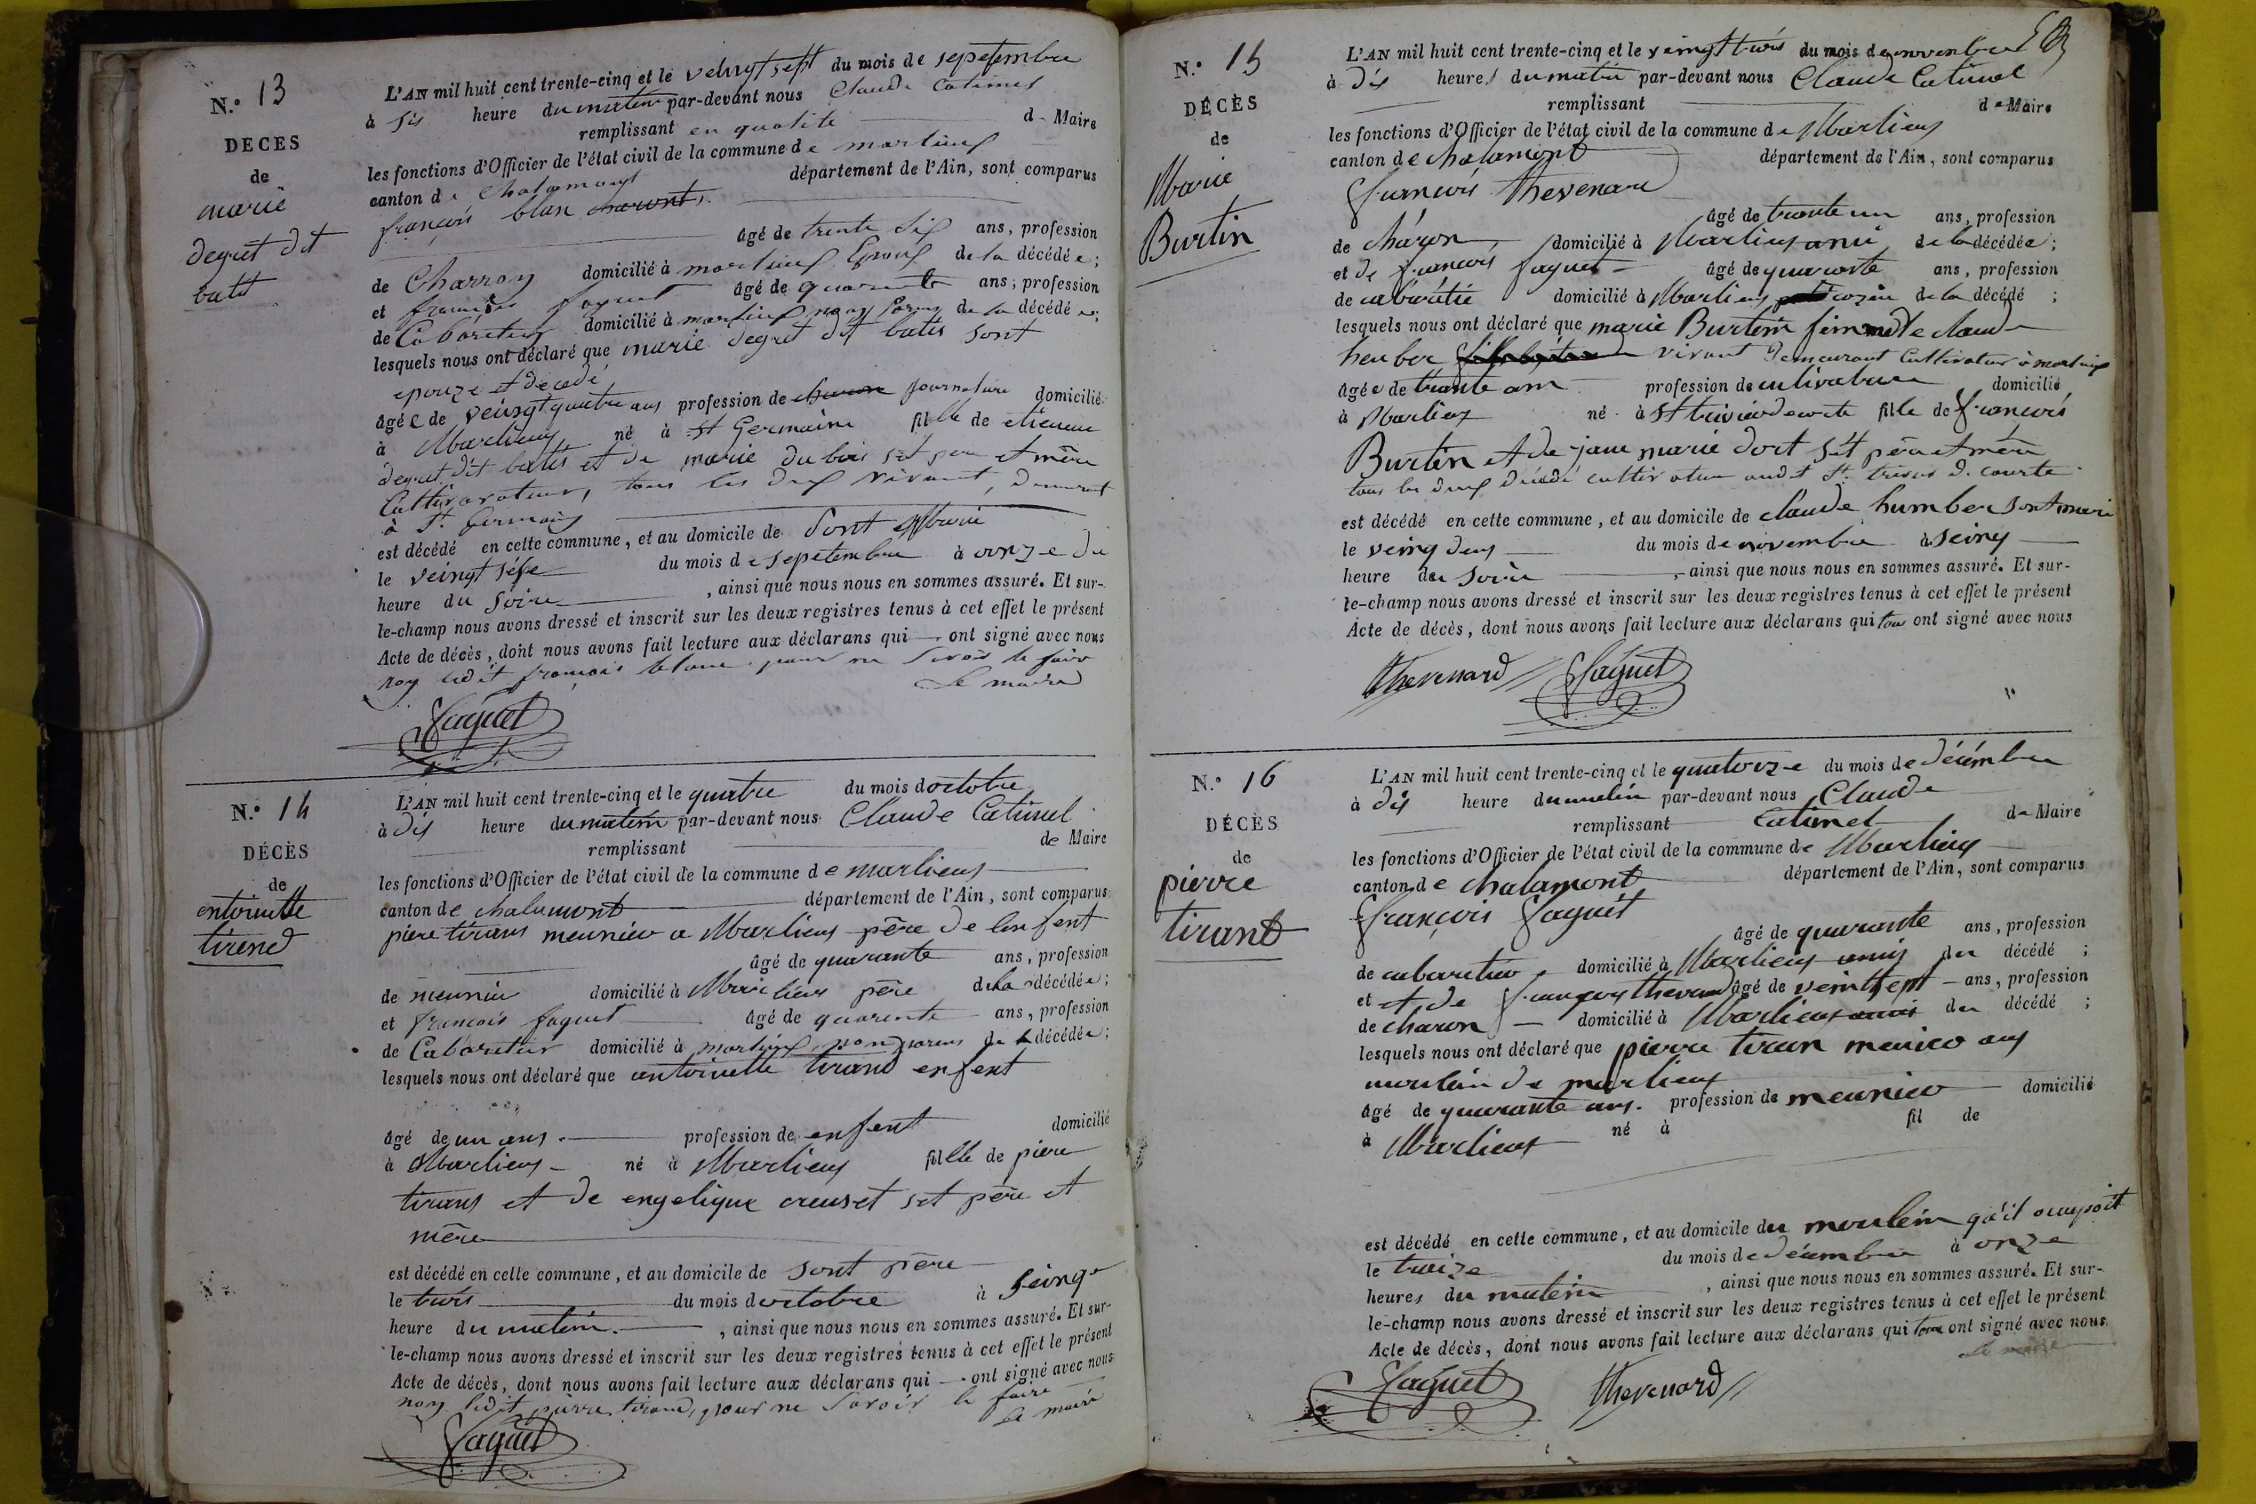 N.° 13
DECES
de
marie
degret dit
batit
L'AN mil huit cent trente-cinq et le veingt sept du mois de sepetembre
à sis heure du matin par-devant nous Claude Catimel
remplissant en qualité de Maire
les fonctions d'Officier de l'état civil de la commune de marlieux
canton de Chalamont département de l'Ain, sont comparus
françois blan
âgé de trente six ans, profession
de Charron domicilié à marlieux de la décédée;
et françois faguet âgé de quarente ans, profession
de Cabaretier domicilié à marlieux non parens de la décédée;
lesquels nous ont déclaré que marie degret dit batit sont
epouze et decedé
âgée de veingt quatre ans profession de journalière domicilié
à Marlieux né à St Germain fille de etienne
degret dit batit et de marie dubois set pere et mère
Cultivateurs, tous les deux vivant, demeurant
à St. Germain
est décédé en cette commune, et au domicile de sont Marie
le veingt séße du mois de sepetembre à onze du
heure du soire, ainsi que nous nous en sommes assuré. Et sur-
le-champ nous avons dressé et inscrit sur les deux registres tenus à cet effet le présent
Acte de décès, dont nous avons fait lecture aux déclarans qui ont signé avec nous
non ledit françois blanc pour ne savoir le faire
Le maire
Faguet
N.° 14
DÉCÈS
de
entoinette
tirend
L'AN mil huit cent trente-cinq et le quatre du mois doctobre
à dis heure du matin par-devant nous Claude Catimel
remplissant de Maire
les fonctions d'Officier de l'état civil de la commune de marlieux
canton de chalamont département de l'Ain, sont comparus
piere tirans meunieu a Marlieux père de lenfent
âgé de quarante ans, profession
de meunié domicilié à Marlieux père dela décédée;
et francois faguet âgé de quarente ans, profession
de Cabaretier domicilié à marlieux non parens de la décédée;
lesquels nous ont déclaré que entoinette tirand enfent
âgé de un ans profession de enfent domicilié
à Marlieux né à Marlieux fillle de piere
tirans et de engelique creuset set père et
mère
est décédé en cette commune, et au domicile de sont père
le trois du mois doctobre à seinq
heure du matin, ainsi que nous nous en sommes assuré. Et sur-
le-champ nous avons dressé et inscrit sur les deux registres tenus à cet effet le présent
Acte de décès, dont nous avons fait lecture aux déclarans qui ont signé avec nous
non ledit pierre tirand, pour ne savoir le faire
Le maire
Faguet
N.° 15
DÉCÈS
de
Marie
Burtin
L'AN mil huit cent trente-cinq et le veingt trois du mois de novembre
à dis heures du matin par-devant nous Claude Catimel
remplissant de Maire
les fonctions d'Officier de l'état civil de la commune de Marlieux
canton de chalamont département de l'Ain, sont comparus
François thevenard
âgé de trante un ans, profession
de charon domicilié à Marlieux ami de la décédée;
et de françois faguet âgé de quarante ans, profession
de cabaretié domicilié à Marlieux cozin de la décédé;
lesquels nous ont déclaré que marie Burtin femme de claude
heuber vivant demeurant cultivateur à marlieux
âgée de trante ans profession de cultivateur domicilié
à Marlieux né à St trivié de courte fille de françois
Burtin et de jane marie dort set père et mère
tous les deux décédé cultivateur audit St. trivié de courte
est décédé en cette commune, et au domicile de claude humber sont mari
le veing deux du mois de novembre à seinq
heure du soire, ainsi que nous nous en sommes assuré. Et sur-
le-champ nous avons dressé et inscrit sur les deux registres tenus à cet effet le présent
Acte de décès, dont nous avons fait lecture aux déclarans qui tous ont signé avec nous
thevenard Faguet
N.° 16
DÉCÈS
de
pierre
tirant
L'AN mil huit cent trente-cinq et le quatorze du mois de décémbre
à dis heure du matin par-devant nous Claude
remplissant Catimel de Maire
les fonctions d'Officier de l'état civil de la commune de Marlieux
canton de chalamont département de l'Ain, sont comparus
François Faguét
âgé de quarante ans, profession
de cabaretier domicilié à Marlieux amis du décédé;
et et de françois thevenard âgé de veint sept ans, profession
de charon domicilié à Marlieux amis du décédé;
lesquels nous ont déclaré que pierre tiran meunieo aux
moulin de marlieux
âgé de quarante ans. profession de meunieo domicilié
à Marlieux né à fil de
est décédé en cette commune, et au domicile du moulin qu'il occupoit
le treize du mois de décembre à onze
heures du matin, ainsi que nous nous en sommes assuré. Et sur-
le-champ nous avons dressé et inscrit sur les deux registres tenus à cet effet le présent
Acte de décès, dont nous avons fait lecture aux déclarans qui tous ont signé avec nous
Le maire
Faguet thevenard